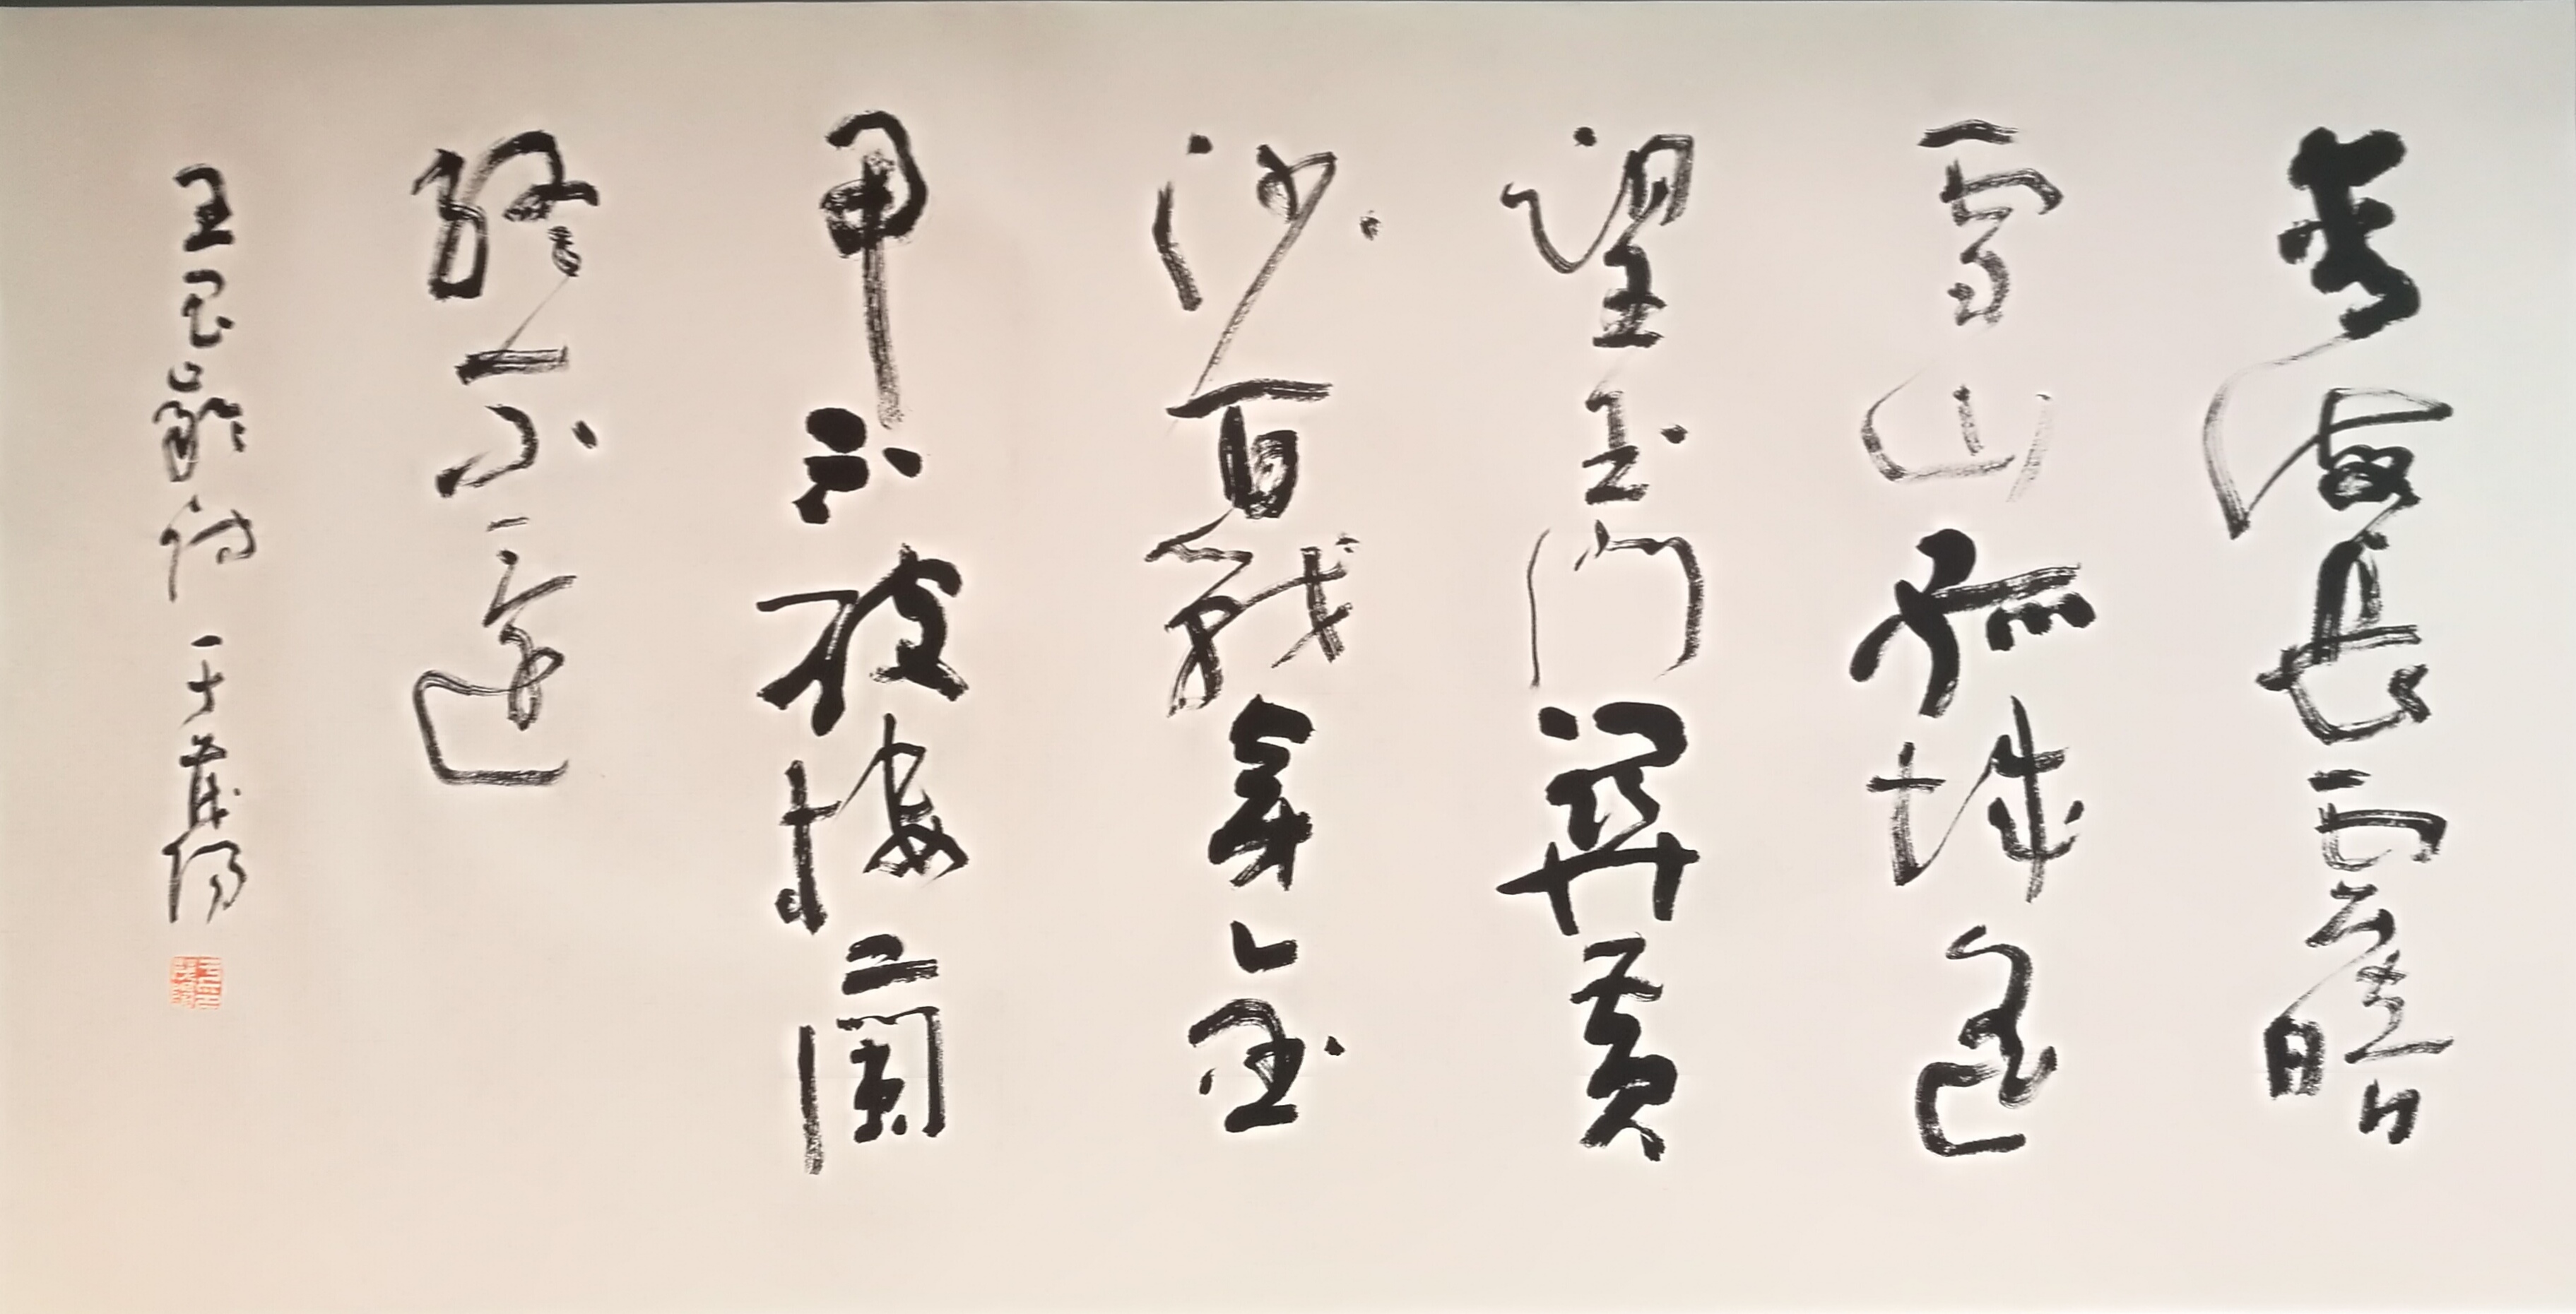 青海長雲暗
雪山孤城遙
望玉門關黃
沙百戰穿金
甲不破樓蘭
終不還
王昌齡詩 于茂陽